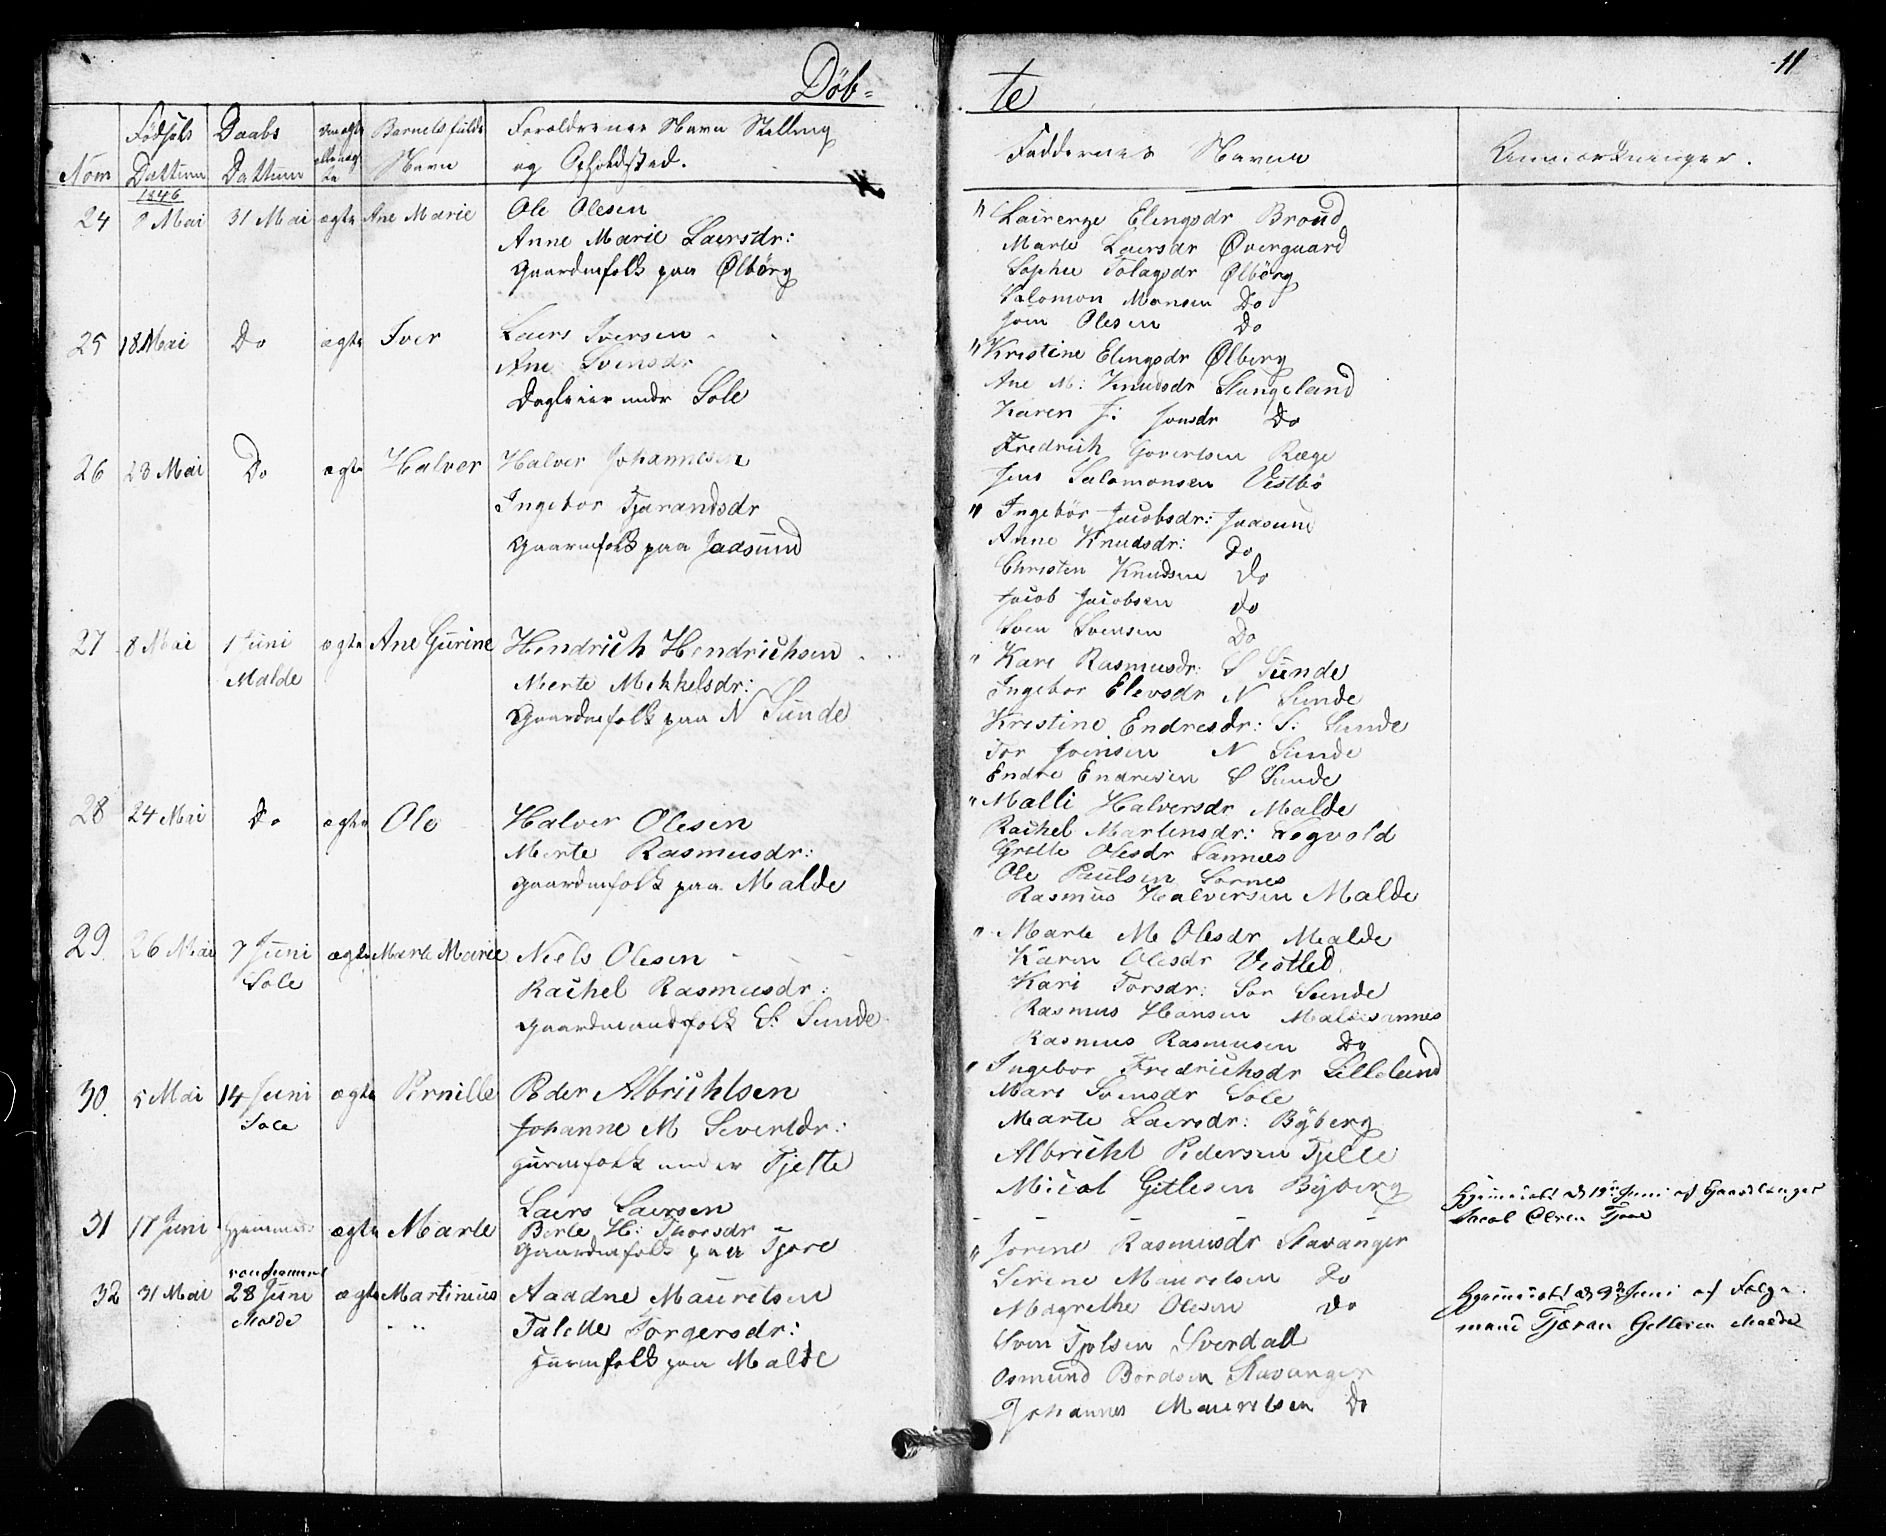 Döb=
te
11
Nom
Födsels Dattum
Daabs Dattum
Barnets fulde Navn
Foreldrenes Navn Stelling
og Opholdsted.
Faddernes Navne
Anmærkninger.
1846
24 Mai 31 Mai ægte Ane Marie
Ole Olesen
Anne Marie Laersdr:
Gaardmfolk paa Ølbörg
Elingsdr Broud
Marte Laersdr Øvergaard
Sophie Tolagsdr Ølbörg
Salomon Monsen Do
Joen Olesen Do
25 18 Mai Do ægte Iver
Laers Iversen
Ane Svensdr
under Sole
Kristine Elingsdr Ølberg
Ane M: Knudsdr Stangeland
Karen J: Jonsdr Do
Fredrich Govertsen Ræge
Jens Salomonsen Vestbö
26 23 Mai Do ægte Halver
Halver Johannesen
Ingebor Tjarandsdr
Gaarmfolk paa Jadsund
Ingebör Jacobsdr: Jadsund
Anne Knudsdr: Do
Christen Knudsen Do
Jacob Jacobsen do
Sven Svensen Do
27 8 Mai 1 Juni Malde ægte Ane Gurine
Hendrich Hendrichsen
Merte Mekkelsdr:
Gaardmfolk paa N Sunde
Kari Rasmusdr: S Sunde
Ingebor Elevsdr N Sunde
Kristine Endresdr: S: Sunde
Tor Joensen N Sunde
Endre Endresen S Sunde
28 24 Mai Do ægte Ole
Halver Olesen
Merte Rasmusdr:
Gaardmfolk paa Malde
Malli Halversdr Malde
Rachel Martensdr:
Grette Olesdr Sannes
Ole Paulsen Sornes
Rasmus Halversen Malde
29. 26 Mai 7 Juni Sole ægte Marte Marie
Niels Olesen
Rachel Rasmusdr:
Gaardmandsfolk S: Sunde
Marte M Olesdr Malde
Karen Olesdr
Kari Torsdr: Sor Sunde
Rasmus Hansen Maldesannes
Rasmus Rasmusen Do
30. 5 Mai 14 Juni Sole ægte Pernille
Peder Albrichtsen
Johanne M Severtdr:
under Tjelte
Ingebor Fredrichsdr Lillelund
Mari Svensdr Sole
Marte Laersdr: Byberg
Albricht Pedersen Tjelte
Micol Gitlesen Byberg
31 17 Juni Hjemmed ægte Marte
Laers Laersen
Berte H: Thorsdr
Gaardmfolk paa Tjore
Hjemmedöbt d 19de Juni af
Jacob Olsen Tjore
32 31 Mai 28 Juni Malde ægte Martinius
Aaadne Mauretsen
Talette Torgersdr:
paa Malde
Jorine Rasmusdr Stavanger
Serene Mauretsen Do
Magrethe Olesen Do
Sven Sverdall
Osmund Bordsen Stavanger
Johannes Mauretsen Do
Hjemmedöbt d 9de Juni af
mand Tjæran Malde